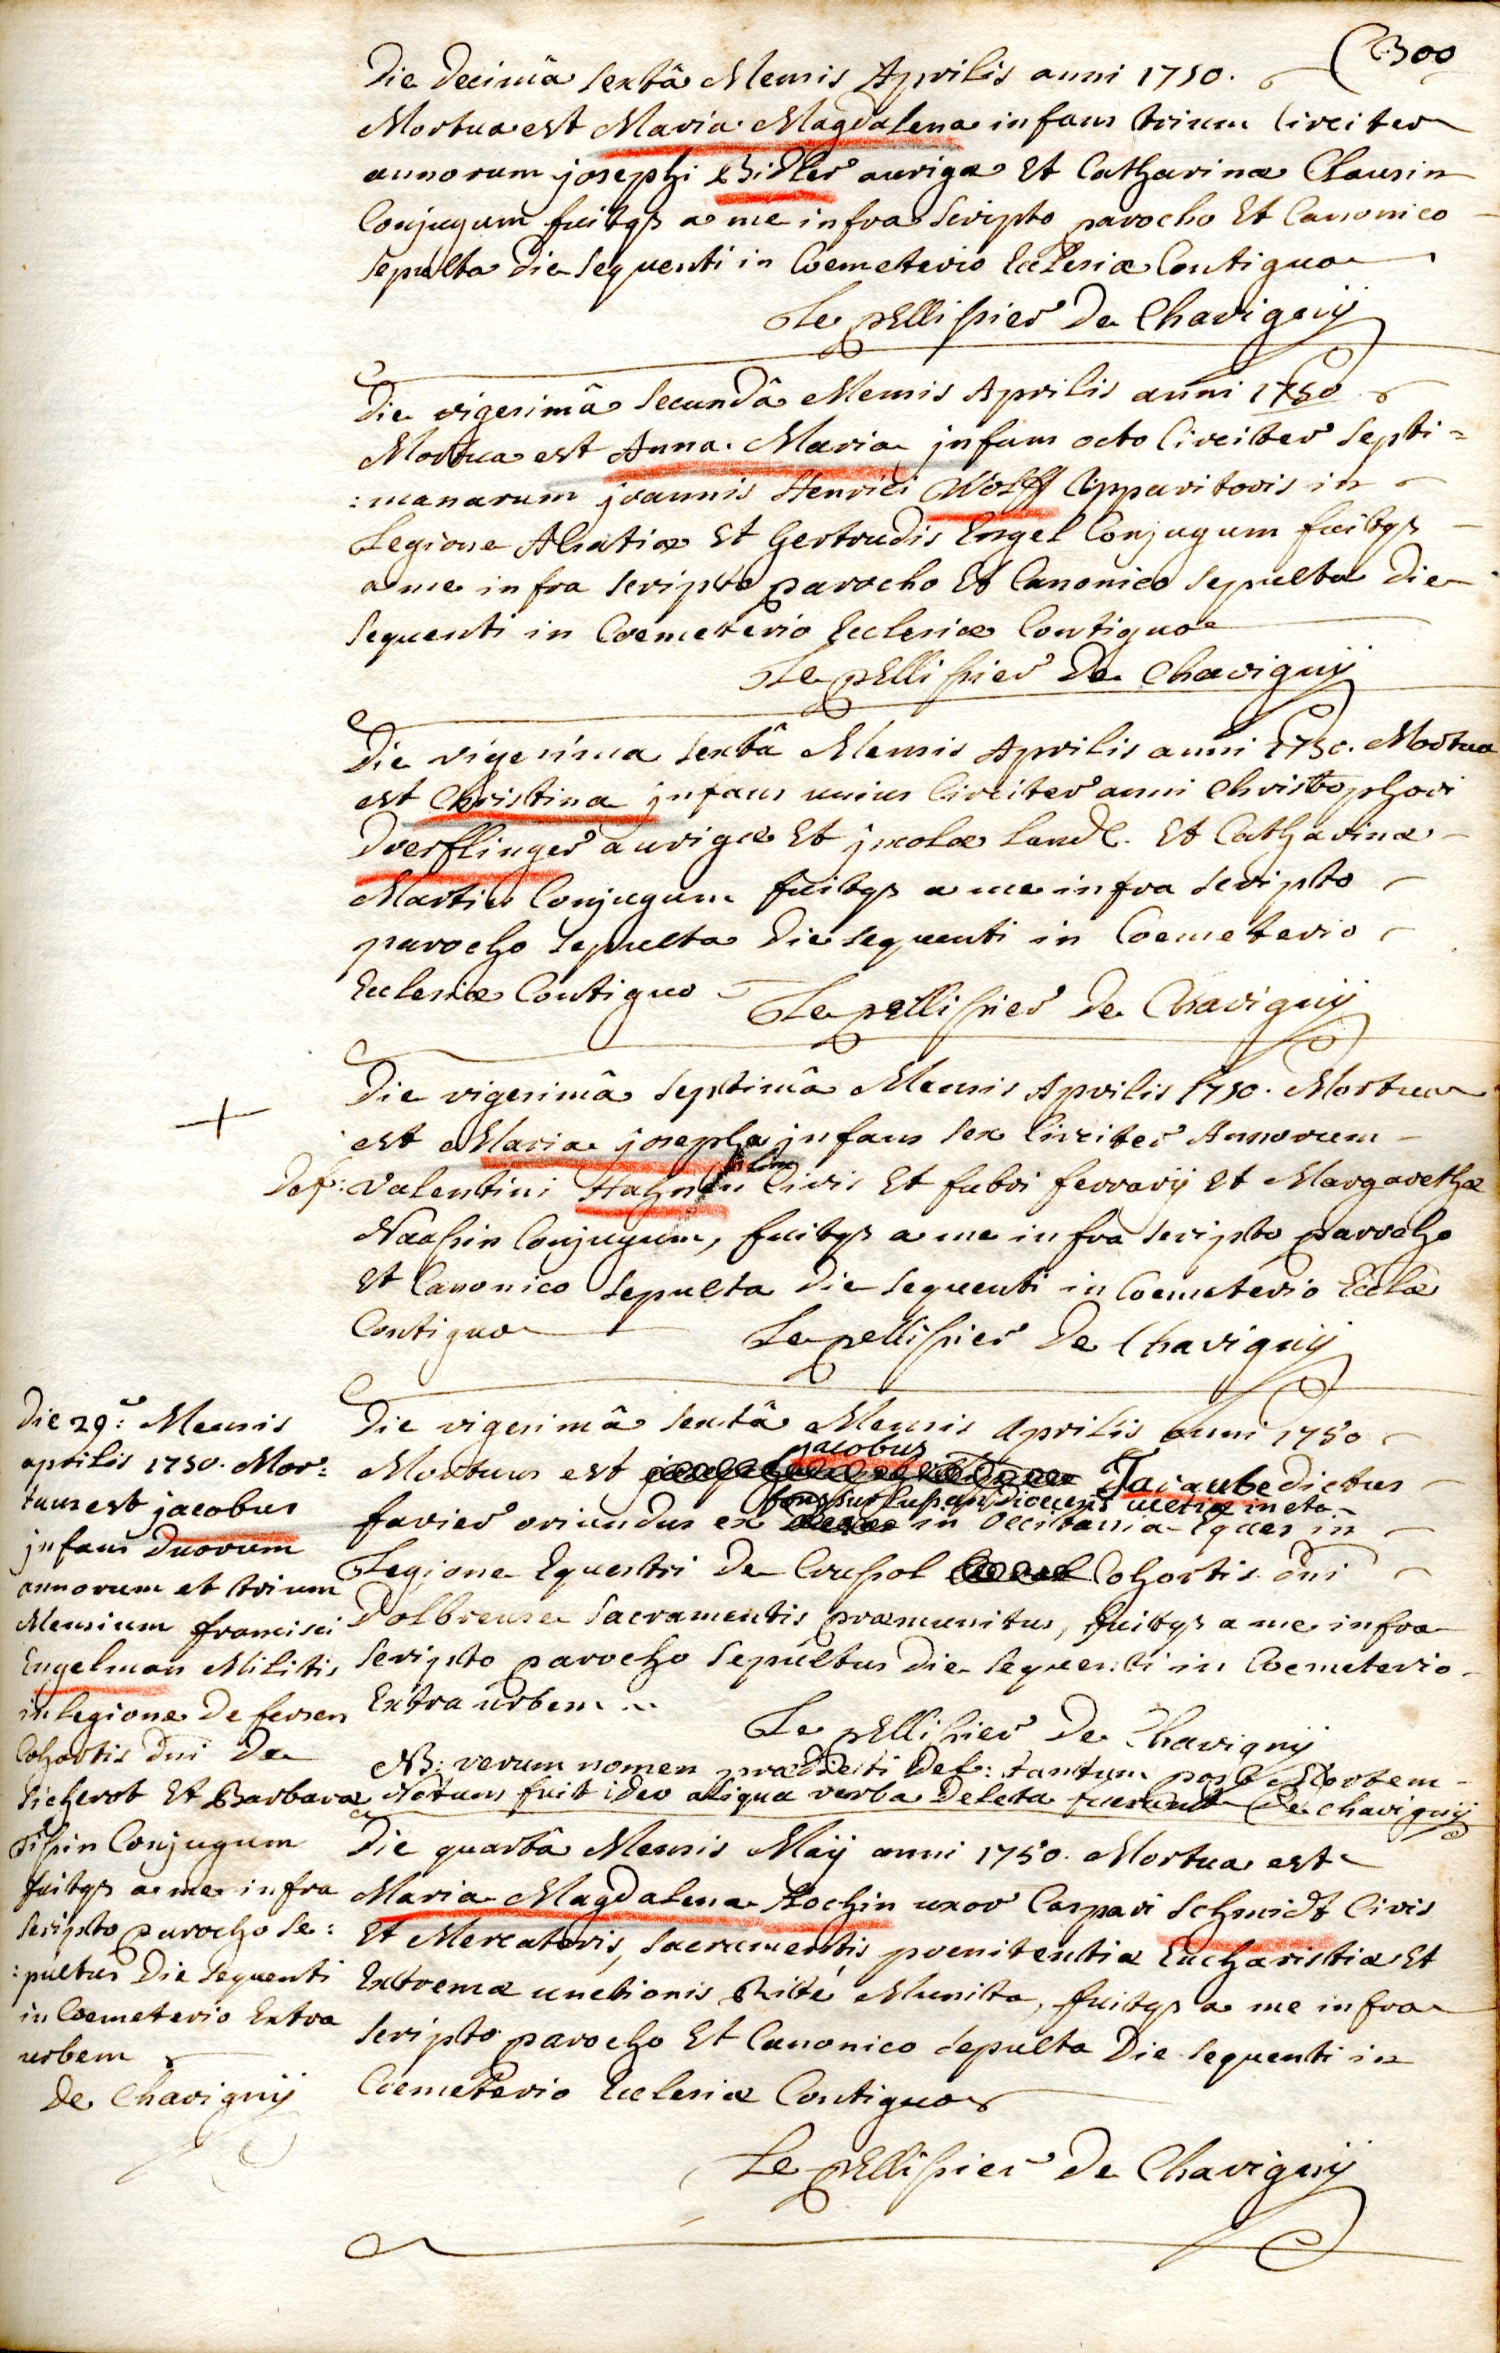 300
Die Decimâ sextâ Mensis Aprilis anni 1750.
Mortua est Maria Magdalena infans trium Circiter
annorum josephi Bidler aurigæ Et Catharinæ Clausin
Conjugum fuitqs a me infra scripto parocho Et Canonico
sepulta die sequenti in Coemeterio Ecclesiæ Contiguo
Le pellissier De Chavignÿ
Die vigesimâ secundâ Mensis Aprilis anni 1750
Mortua est Anna Maria jnfans octo Circiter septi=
:manarum joannis Henrici Wolff Apparitoris in
Legione Alsatiæ Et Gertrudis Engel Conjugum fuitqs
a me infra scripto parocho Et Canonico sepulta die
sequenti in Coemeterio Ecclesiæ Contiguo
Le pellissier De Chavignÿ
Die vigesima sextâ Mensis Aprilis anni 1750. Mortua
est Christina jnfans unius Circiter anni Christophori
Dverflinger aurigæ Et jncolæ Land. Et Catharinæ
Martin Conjugum fuitqs a me infra scripto
parocho sepulta die sequenti in Coemeterio
Ecclesiæ Contiguo
Le pellissier De Chavignÿ
Die vigesimâ septimâ Mensis Aprilis 1750. Mortua
est Maria josepha jnfans sex Circiter Annorum
Def: Valentini Hahn Civis Et fabri ferrarÿ Et Margarethæ
Naassin Conjugum, fuitqs a me infra scripto parocho
Et Canonico sepulta die sequenti in Coemeterio Ecclæ
Contiguo
Le pellissier De Chavignÿ
Die vigesimâ sextâ Mensis Aprilis anni 1750
jacobus
Mortuus est Jacaube dictus
in eta
favier oriundus ex in Occitania Eques in
Legione Equestri De Crussol Cohortis dni
Dolbreuse sacramentis præmunitus, fuitqs a me infra
scripto parocho sepultus die sequenti in Coemeterio
Extra urbem
Le pellissier De Chavignÿ
NB: verum nomen prædicti Def: tantum post Mortem
Notum fuit ideo aliqua verba Deleta fuerunt De Chavignÿ
Die quartâ Mensis Maÿ anni 1750. Mortua est
Maria Magdalena Kochin uxor Caspari Schmidt Civis
Et Mercatoris, sacramentis poenitentiæ Eucharistiæ Et
Extremæ unctionis Rite Munita, fuitqs a me infra
scripto parocho Et Canonico sepulta Die sequenti in
Coemeterio Ecclesiæ Contiguo
Le pellissier De Chavignÿ
Die 29â Mensis
aprilis 1750. Mor:
tuus est jacobus
jnfans Duorum
annorum et trium
Mensium francisci
Engelman Militis
in legione De fersen
Cohortis Dni De
Et Barbaræ
Conjugum
fuitqs a me infra
scripto parocho se:
:pultus Die sequenti
in Coemeterio Extra
urbem
De Chavignÿ